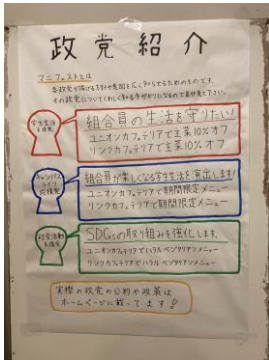 政党紹介
マニフェストとは
各政党が掲げる方針や意図を広く知らせるためのものです。
その政党についてくわしく知る手がかりになるので是非見て下さい。
学生生活
組合員の生活を守りたい!
ユニオンカフェテリアで主菜10%オフ
リンクカフェテリアで主菜10%オフ
キャンパス
ライフ
組合員が楽しくなる学生生活を演出します!
ユニオンカフェテリアで期間限定メニュー
リンクカフェテリアで期間限定メニュー
SDGsの取り組みを強化します。
ユニオンカフェテリアでハラルベジタリアンメニュー
リンクカフェテリアでハラルベジタリアンメニュー
実際の政党の公約や政策は
ホームページに載ってます!